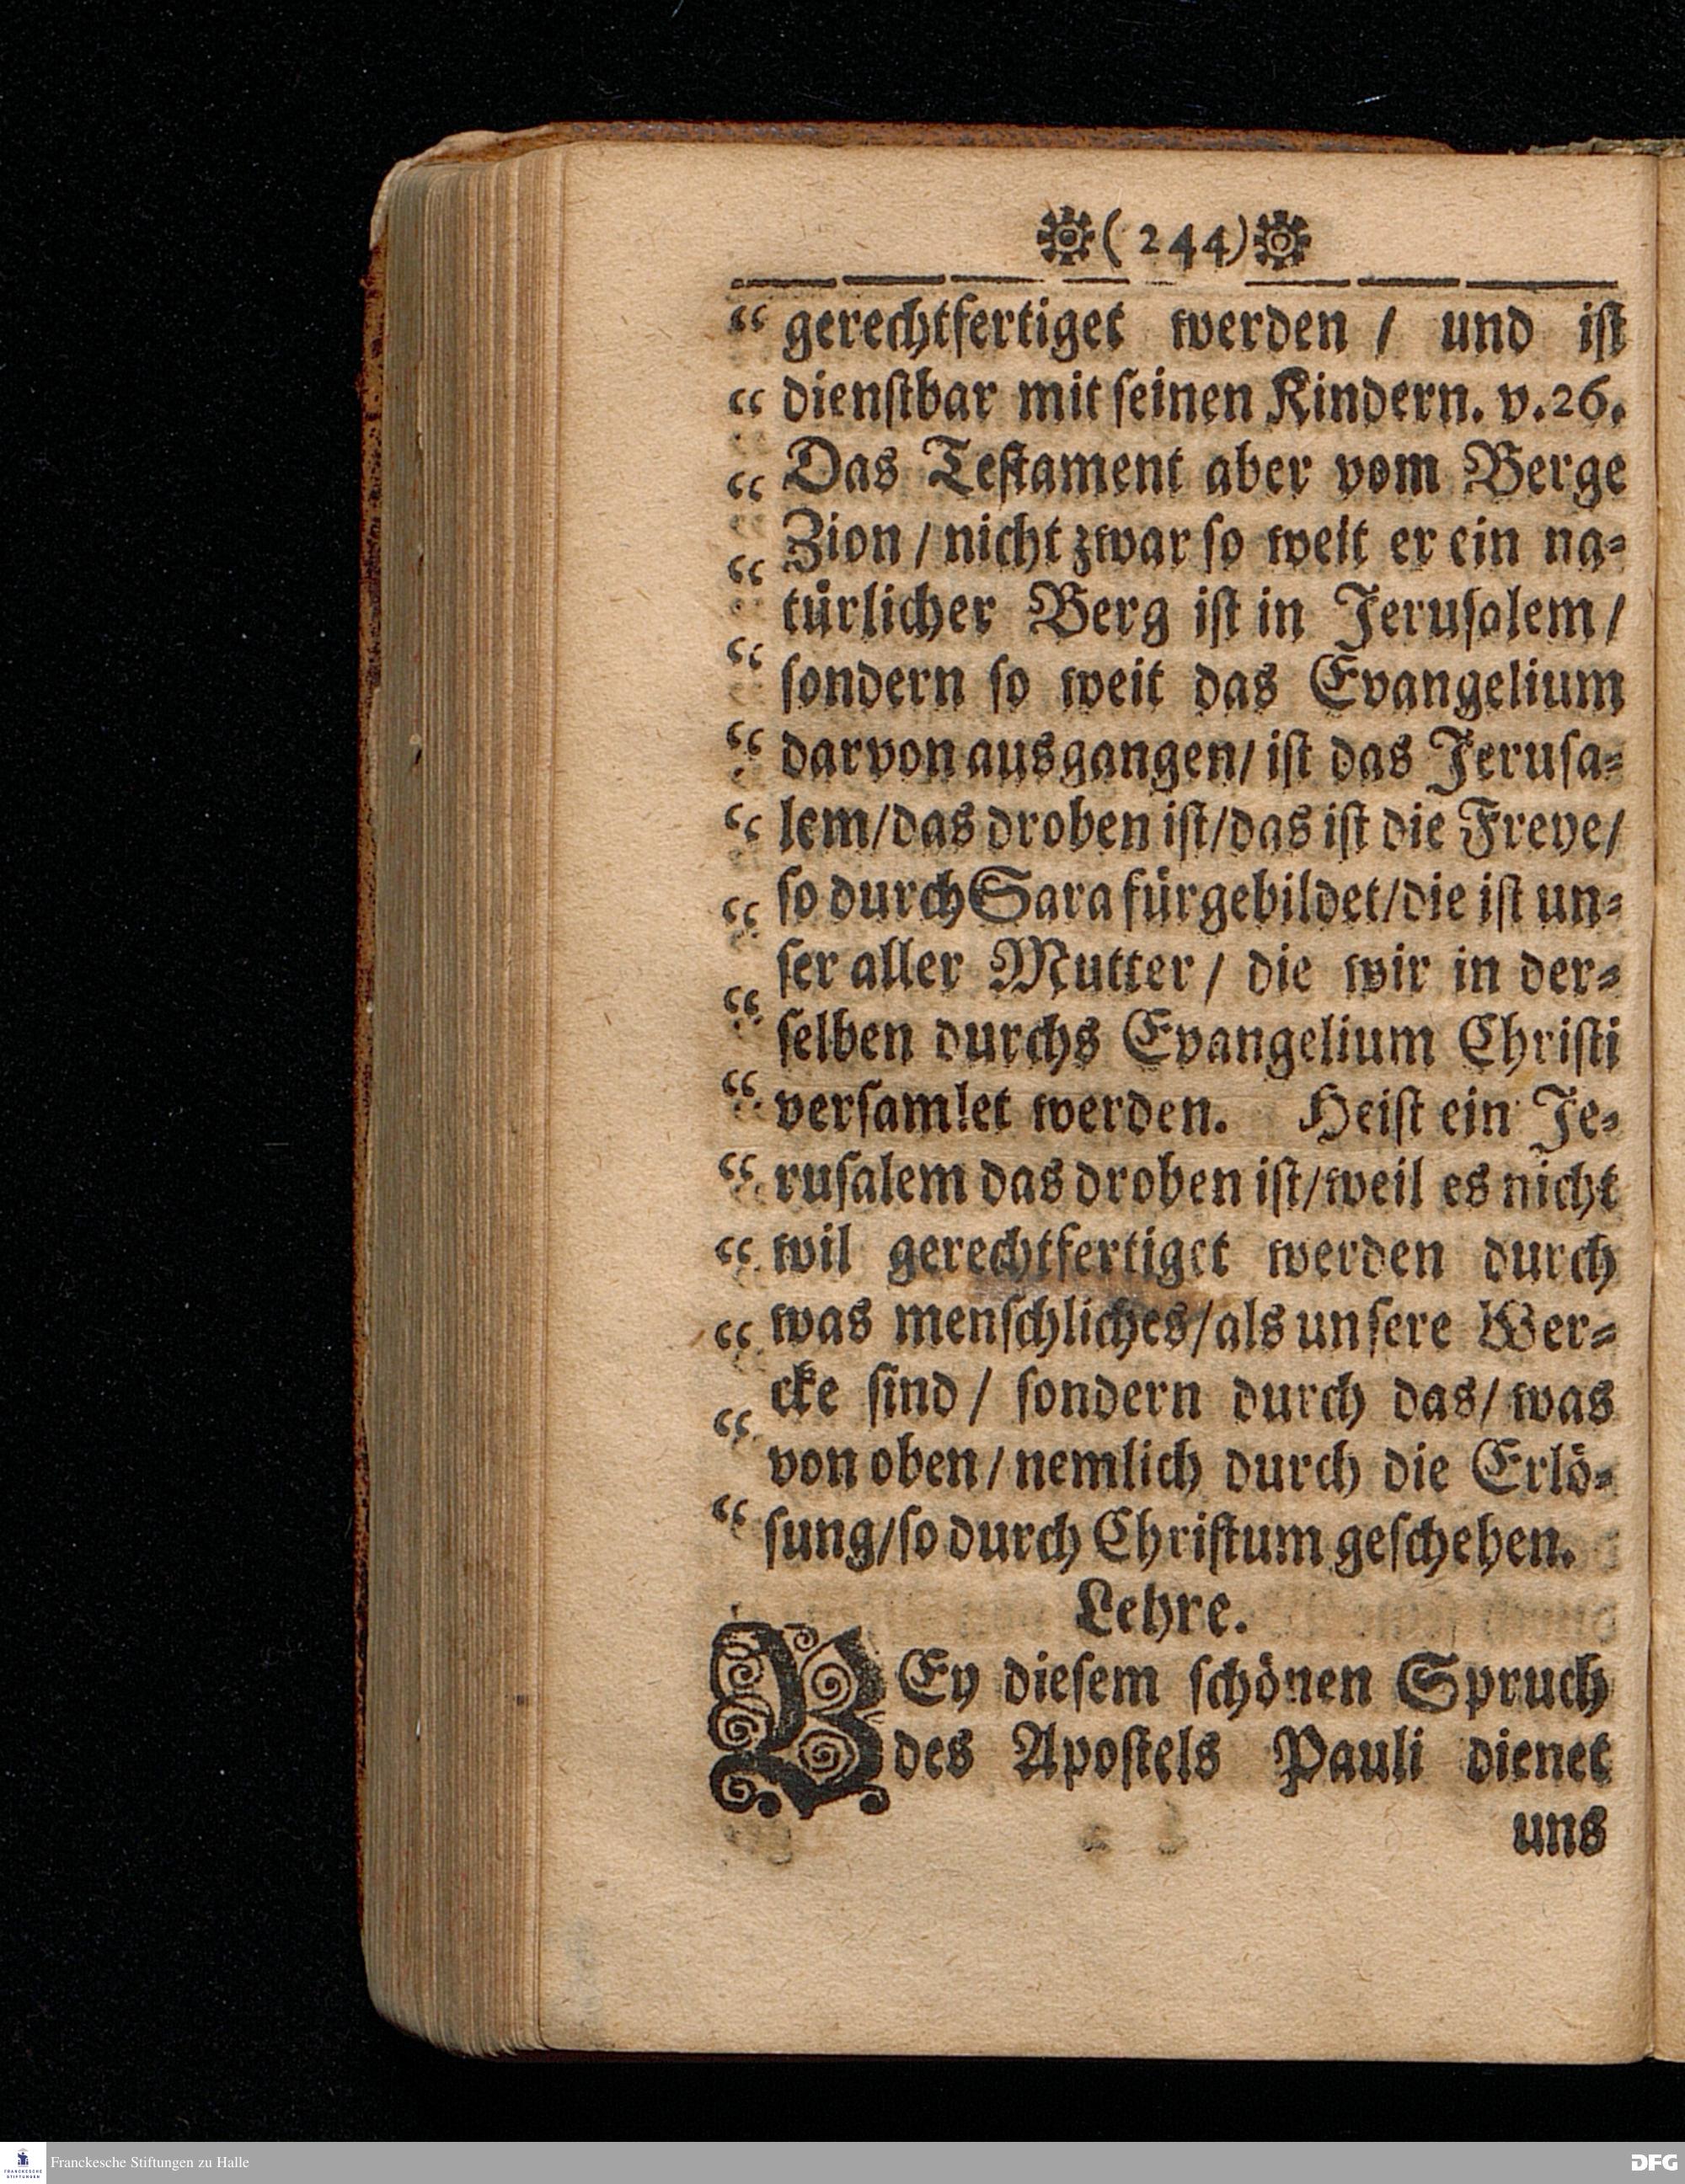 ( 244 )
“ gerechtfertiget werden / und ist
“ dienstbar mit seinen Kindern. v. 26.
“ Das Testament aber vom Berge
“ Zion / nicht zwar so weit er ein na-
türlicher Berg ist in Jerusalem /
“ sondern so weit das Evangelium
“ darvon ausgangen / ist das Jerusa-
“ lem / das droben ist / das ist die Freye /
“ so durch Sara fürgebildet / die ist un-
ser aller Mutter / die wir in der-
“ selben durchs Evangelium Christi
“ versamlet werden. Heist ein Je-
“ rusalem das droben ist / weil es nicht
“ wil gerechtfertiget werden durch
“ was menschliches / als unsere Wer-
cke sind / sondern durch das / was
“ von oben / nemlich durch die Erlö-
“ sung / so durch Christum geschehen.
Lehre.
BEy diesem schönen Spruch
des Apostels Pauli dienet
uns
Franckesche Stiftungen zu Halle
DFG